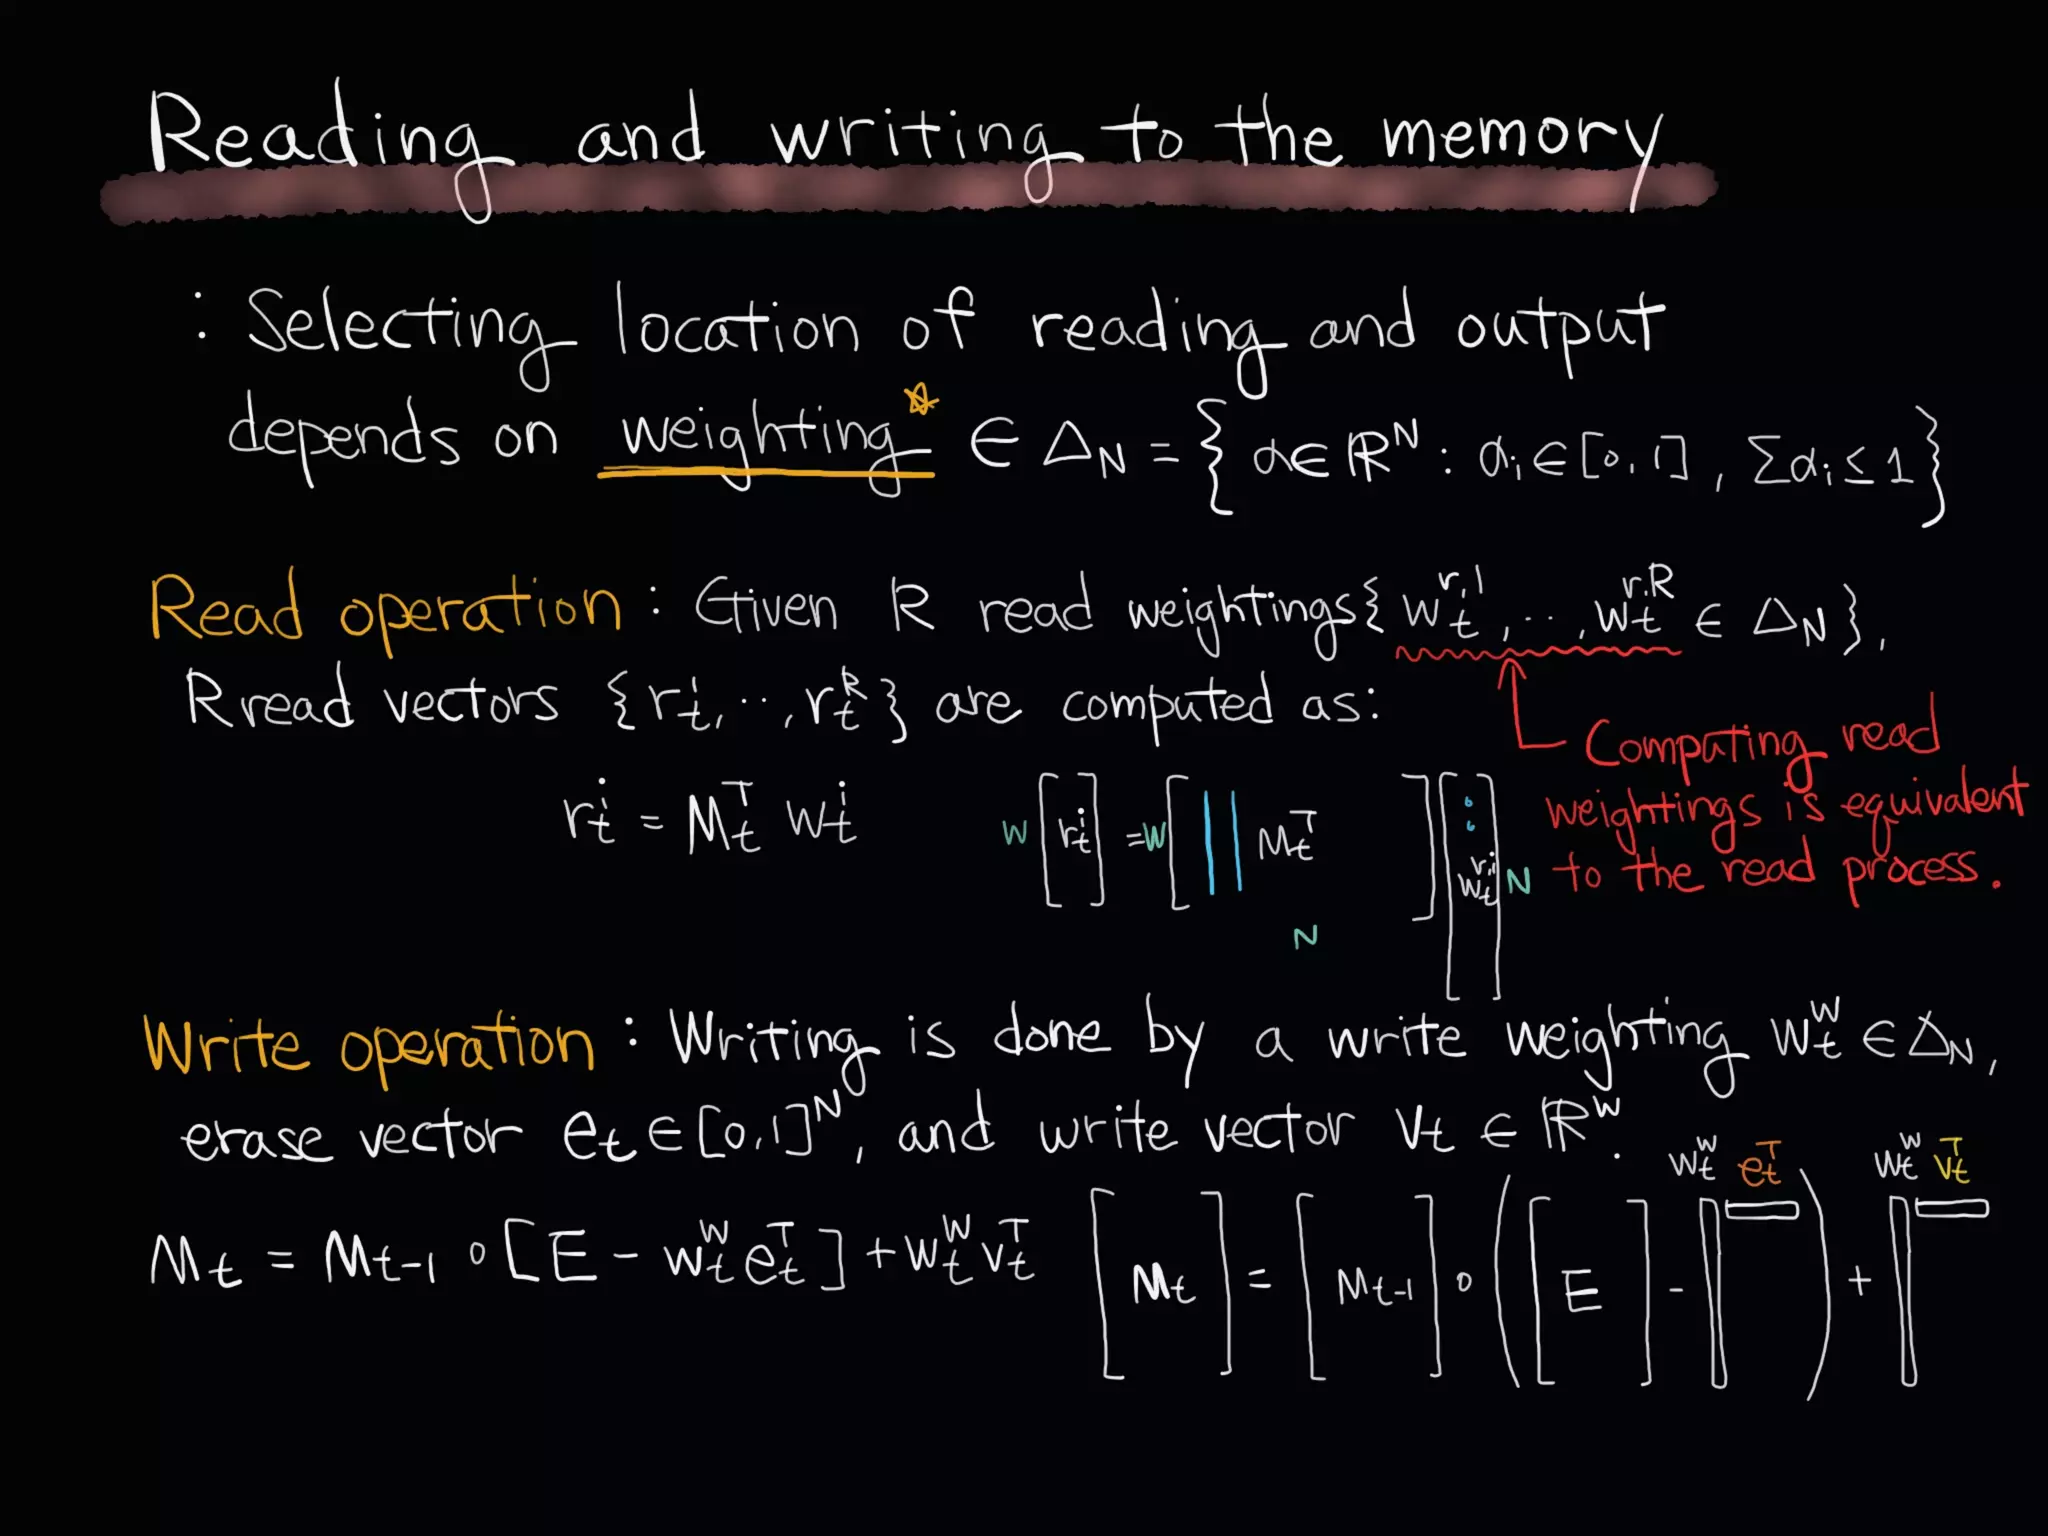 Reading and writing to the memory
: Selecting location of reading and output
depends on weighting* ∈ Δ_N = { α ∈ ℝ^N : α_i ∈ [0,1], Σα_i ≤ 1 }
Read operation : Given R read weightings { w_t^{r,1}, ‥, w_t^{r,R} ∈ Δ_N },
R read vectors { r_t^1, ‥, r_t^R } are computed as:
r_t^i = M_t^T w_t^i
W [ r_t^i ] = W [ M_t^T ] [ : w_t^{r,i} ] N
N
Computing read
weightings is equivalent
to the read process.
Write operation : Writing is done by a write weighting w_t^w ∈ Δ_N,
erase vector e_t ∈ [0,1]^N, and write vector v_t ∈ ℝ^W.
M_t = M_{t-1} ∘ [ E - w_t^w e_t^T ] + w_t^w v_t^T
w_t^w e_t^T w_t^w v_t^T
[ M_t ] = [ M_{t-1} ] ∘ ( [ E ] - ) +